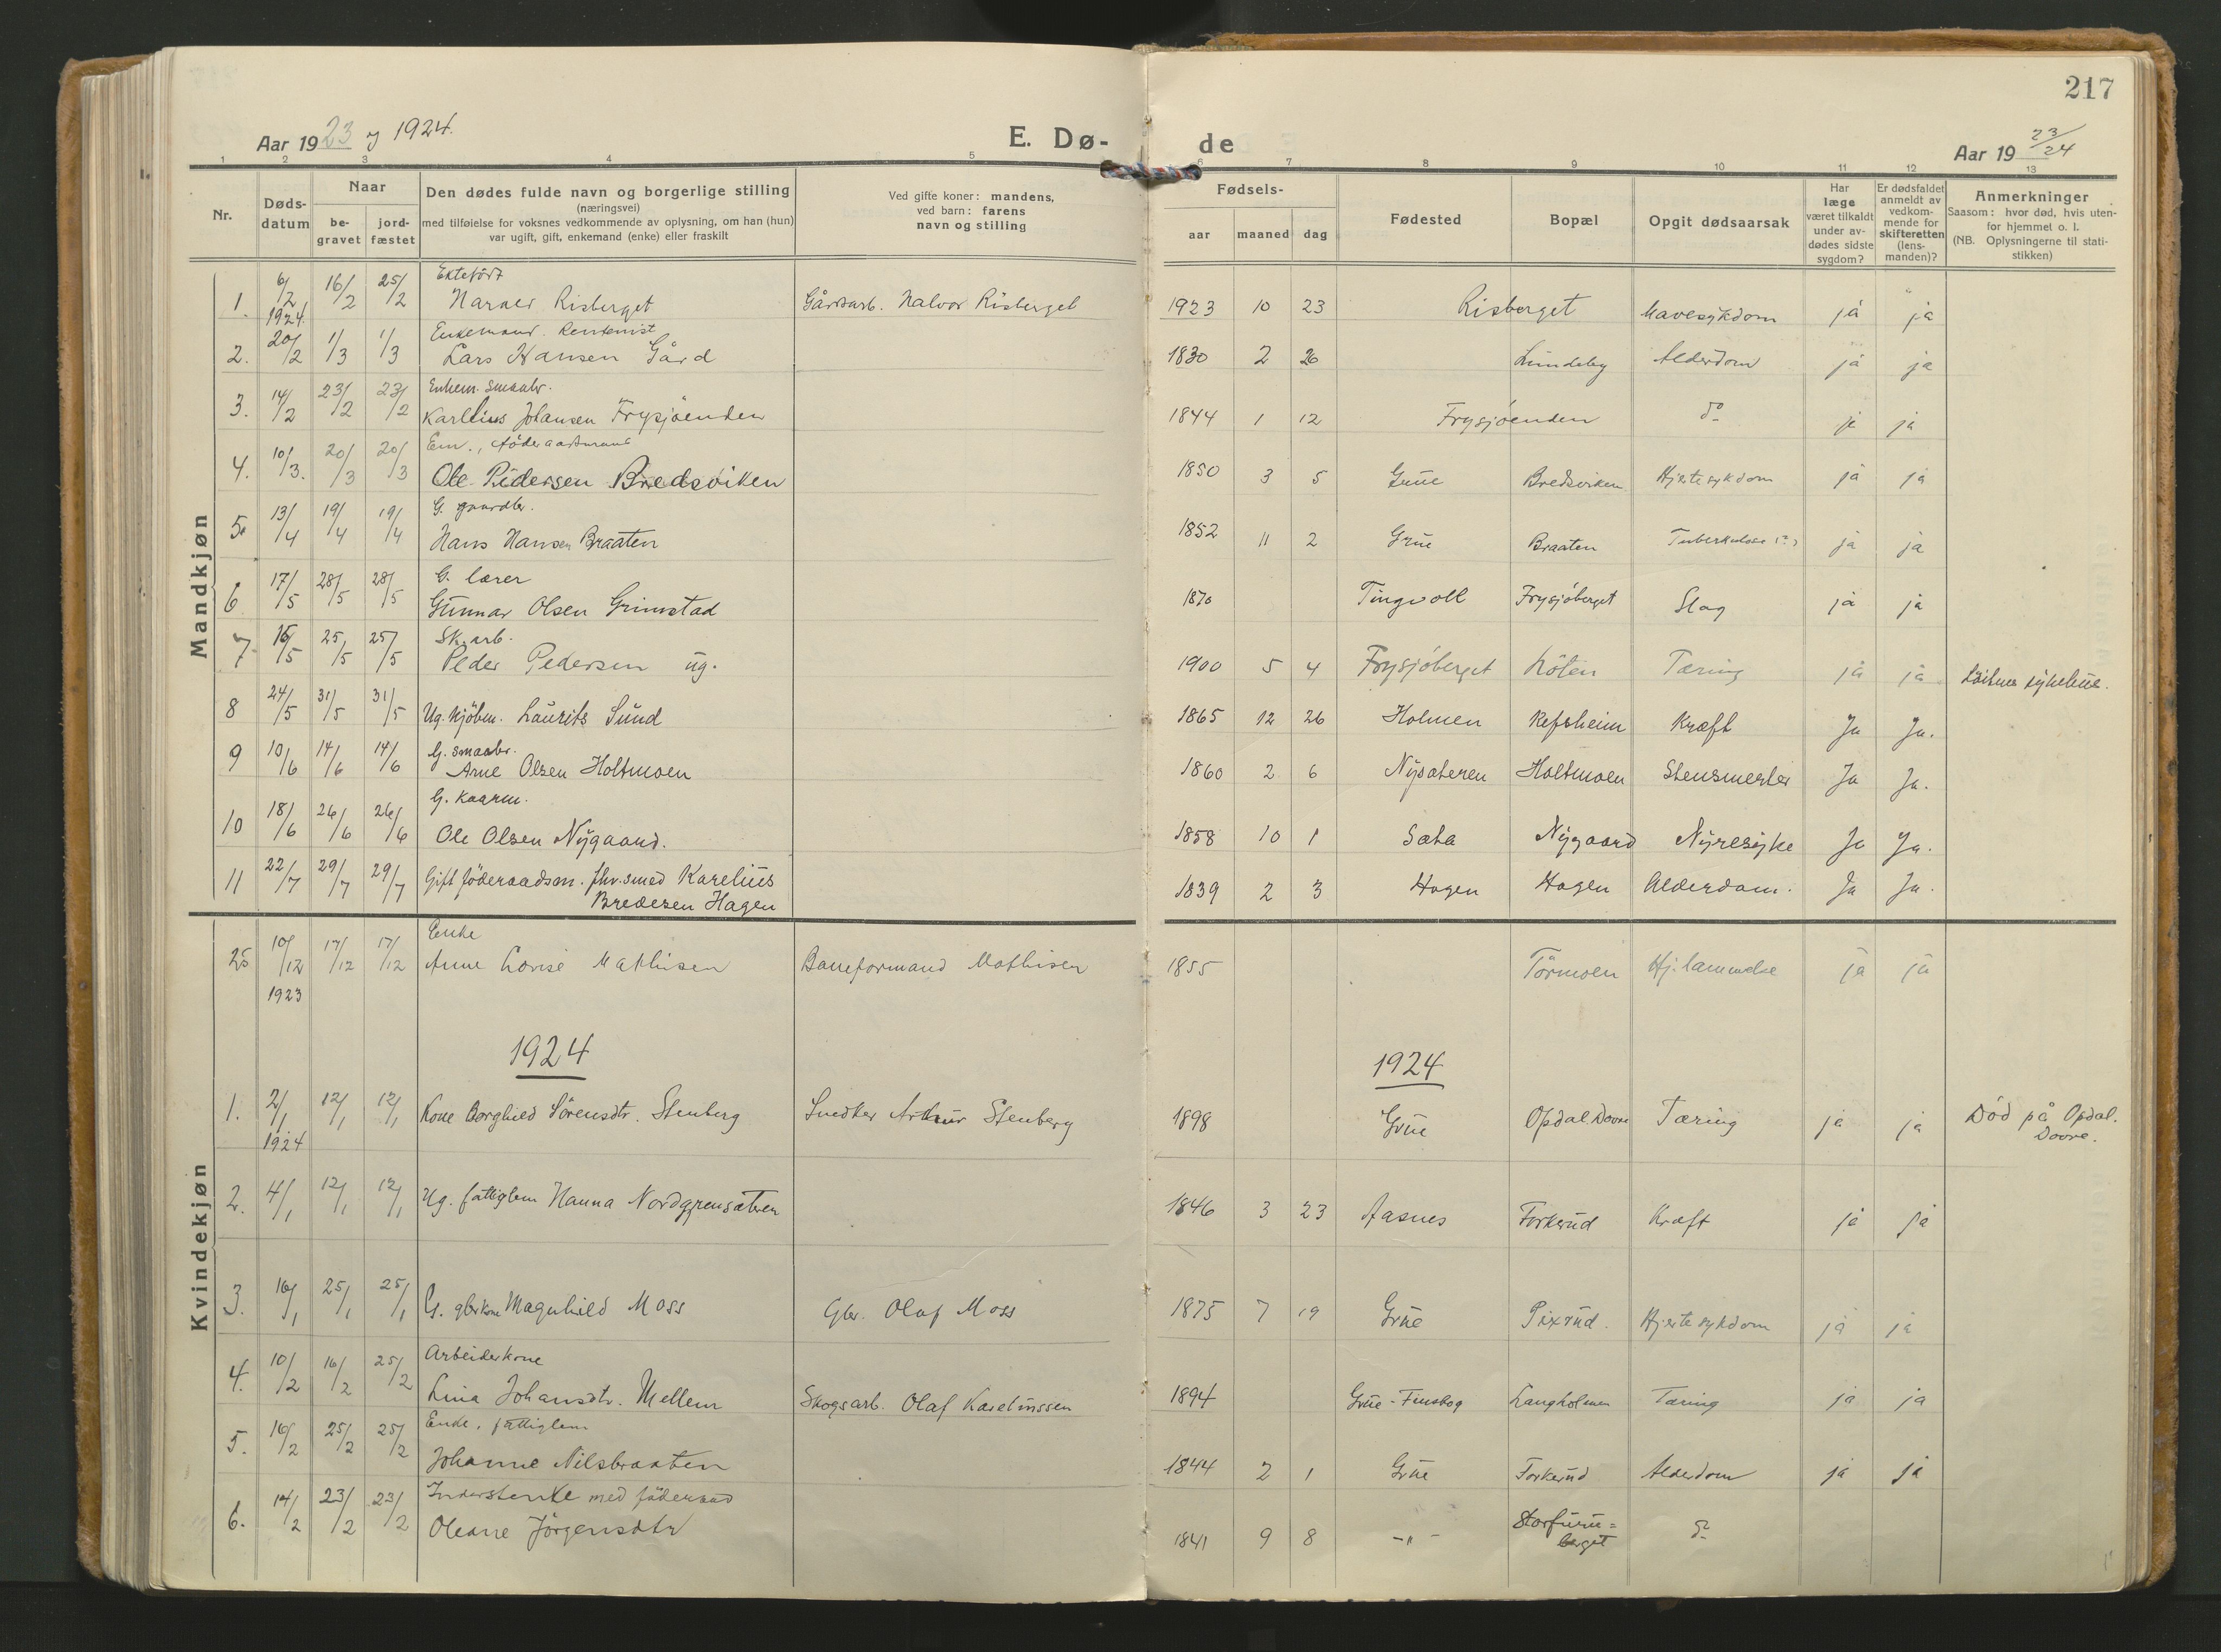 217
Aar 1923 og 1924.
E. Dø-
de
Aar 19 23/24
1 2 3 4 5 6 7 8 9 10 11 12 13
Nr.
Døds-
datum
Naar
be-
gravet
jord-
fæstet
Den dødes fulde navn og borgerlige stilling
(næringsvei)
med tilføielse for voksnes vedkommende av oplysning, om han (hun)
var ugift, gift, enkemand (enke) eller fraskilt
Ved gifte koner: mandens,
ved barn: farens
navn og stilling
Fødsels-
aar maaned dag
Fødested
Bopæl
Opgit dødsaarsak
Har
læge
været tilkaldt
under av-
dødes sidste
sygdom?
Er dødsfaldet
anmeldt av
vedkom-
mende for
skifteretten
(lens-
manden)?
Anmerkninger
Saasom: hvor død, hvis uten-
for hjemmet o. l.
(NB. Oplysningerne til stati-
stikken)
Mandkjøn
Ektefödt
1. 6/2 1924. 16/2 25/2 Risberget Gårdsarb. Halvor Risberget 1923 10 23 Risberget Mavesykdom ja ja
Enkemand. Rentenist
2. 20/2 1/3 1/3 Lars Hansen Gård 1830 2 26 Lundeby Alderdom ja ja
Enkem. smaabr.
3. 14/2 23/2 23/2 Karelius Johansen Frysjöenden 1844 1 12 Frysjöenden do ja ja
Em., föderaadsmand
4. 10/3. 20/3 20/3 Ole Pedersen Bredsviken 1850 3 5 Grue Bredsviken Hjertesykdom ja ja
G. gaardbr.
5. 13/4 19/4 19/4 Hans Hansen Braaten 1852 11 2 Grue Braaten Tuberkulose (?) ja ja
G. lærer
6 17/5 28/5 28/5 Gunnar Olsen Grimstad 1870 Tingvoll Frysjöberget Slag ja ja
Sk.arb.
7. 15/5 25/5 25/5 Peder Pedersen ug. 1900 5 4 Frysjöberget Löten Tæring ja ja Löitens sykehus.
8 24/5 31/5 31/5 Ug. kjöbm. Laurits Sund 1865 12 26 Holmen Refsheim Kræft Ja Ja.
G. smaabr.
9 10/6 14/6 14/6 Arne Olsen Holtmoen 1860 2 6 Nysæteren Holtmoen Stensmerter Ja Ja.
G. kaarm.
10 18/6 26/6 26/6 Ole Olsen Nygaard. 1858 10 1 Sæta Nygaard Nyresyke Ja Ja.
11 22/7 29/7 29/7 Gift föderaadsm. fhv. smed Karelius 1839 2 3 Hagen Hagen Alderdom. Ja Ja.
Bredesen Hagen
Kvindekjøn
Enke
25 10/12 1923 17/12 17/12 Anne Lovise Mathisen Baneformand Mathisen 1855 Törmoen Hj. lammelse ja ja
1924
1924
1. 2/1 1924 12/1 12/1 Kone Borghild Sörensdtr. Stenberg Snedker Arthur Stenberg 1898 Grue Opdal Dovre Tæring ja ja Död på Opdal.
Dovre.
2. 4/1 12/1 12/1 Ug. fattiglem Hanna Nordgrensæteren 1846 3 23 Aasnes Forkerud Kræft ja ja
3. 16/1 25/1 25/1 G. gbrkone Magnhild Moss Gbr. Olaf Moss 1875 7 19 Grue Pixrud. Hjertesykdom ja ja
Arbeiderkone
4. 10/2 16/2 25/2 Lina Johansdtr. Mellem Skogsarb. Olaf Kareliussen 1894 Grue-Finskog Langholmen Tæring ja ja
Enke, fattiglem
5. 16/2 25/2 25/2 Johanne Nilsbraaten 1844 2 1 Grue Forkerud Alderdom ja ja
Inderstenke med föderaad
6. 14/2 23/2 23/2 Oleane Jörgensdtr 1841 9 8 -"- Storfuru=
berget do